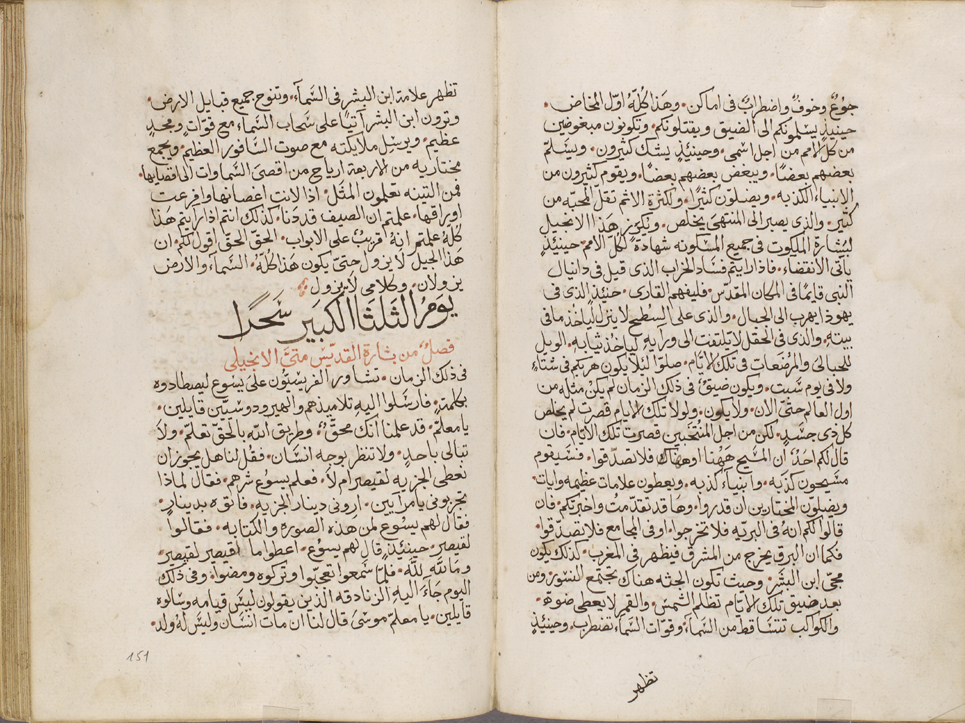 جوعٌ وخوفٌ واضطرابٌ في اماكن. وهَذا كُلّه اوّل المخاض.
حينيذٍ يسلمونكم الى الضيق ويقتلونكم. وتكونون مبغوضين
من كل الامم من اجل اسمى. وحينيذٍ يشك كثيرون. ويسَلّم
بعضهم بعضًا. ويبغض بعضهم بعضًا. ويقوم كثيرون من
الانبياء الكذبه. ويضلون كثيرًا. ولكثرة الاثم تقل المحبّه من
كثير. والذى يصبر الى المنتهى يخلص. ويكرز هَذا الانجيل
ببشارة الملكوت في جميع المسكونه شهادةً لكل الامم. حينيذٍ
يأتى الانقضاء. فاذا رايتم فساد الخراب الذى قيل في دانيال
النبى قايمًا في المكان المقدّس. فليفهم القارى. حينيذٍ الذى في
يهوذا يهرب الى الجبال. والذى على السطح لا ينزل لياخذ ما في
بيته. والذى في الحقل لا يلتفت الى ورايه لياخذ ثيابه. الويل
للحبالى والمرضعات في تلك الايّام. صلوا ليلا يكون هربكم في شتاء
ولا في يوم سبت. ويكون ضيقٌ في ذلك الزمان لم يكن مثله من
اول العالم حتى الان. ولا يكون. ولولا تلك الايام قصرت لم يخلص
كل ذى جسَدٍ. لكن من اجل المنتخبين قصرت تلك الايّام. فان
قال لكم احَدٌ ان المسيح هَهنا او هناك فلا تصدّقوا. فسَيقوم
مسيحيون كذبه. وانبياء كذبه. ويعطون علامات عظيمه وايات.
ويضلون المختارين ان قدروا. وها قد تقدّمت واخبرتكم. فان
قالوا لكم انهُ في البرّيه فلا تخرجوا. او في المخادع فلا تصدّقوا.
فكما ان البرق يخرج من المشرق فيظهر في المغرب. كذلك يكون
مجى ابن البشر. وحيث تكون الجثه هناك تجتمع النسور. ومن
بعد ضيق تلك الايّام تظلم الشمس. والقمر لا يعطى ضوه.
والكواكب تتساقط من السَماء. وقوّات السَماء تضطرب. وحينيذٍ
تظهر
تظهر علامة ابن البشر في السَّمآء. وتنوح جميع قبايل الارض.
وترون ابن البشر آتيًا على سَحاب السَماء. مع قوّات ومجدٍ
عظيم. ويرسِل ملايكته مع صوت السَافور العظيم. ويجمع
مختاريه من الاربعة ارياح من اقصى السَّموات الى اقصايها.
فمن التينه تعلمون المثل. اذا لانت اغصانها وافرعت
اوراقها. علمتم ان الصيف قد دَنا. كذلك انتم اذا رايتم هذا
كلّهُ علمتم انهُ قريبٌ على الابواب. الحقّ الحقّ اقول لكم. ان
هَذا الجيل لا يزول حتى يكون هَذا كلّهُ. السَّمآء والارض
يزولان. وكلامى لا يزول.
يَومُ الثلثا الكَبير سَحَرًا
فصلٌ من بشارة القديس متىّ الانجيلى
في ذلك الزمان. تشاور الفريسَيون على يسوع ليصطادوه
بكلمةٍ. فارسَلوا اليه تلاميذهم والهيرودوسيّين قايلين.
يا معلّم. قد علمنا انك محقٌّ. وطريق الله بالحقّ تعلّم. ولا
تبالى باحدٍ. ولا تنظر بوجه انسَان. فقل لنا هل يجوز ان
نعطى الجزيه لقيصر ام لا. فعلم يسوع شرهم. فقال لماذا
تجربونى يا مرايين. ارونى دينار الجزيه. فاتوه بدينارٍ.
فقال لهم يسُوع لمن هذه الصوره والكتابه. فقالوا
لقيصر. حينيذٍ قال لهم يسوع. اعطوا ما لقيصر لقيصر.
وما لله لله. فلمّا سَمعوا تعجّبوا وتركوه ومضوا. وفي ذلك
اليوم جَآء اليه الزنادقه الذين يقولون ليسَ قيامه وسَالوه
قايلين. يا معلم. موسَى قال لنا ان مات انسَان وليسَ لهُ ولد.
151